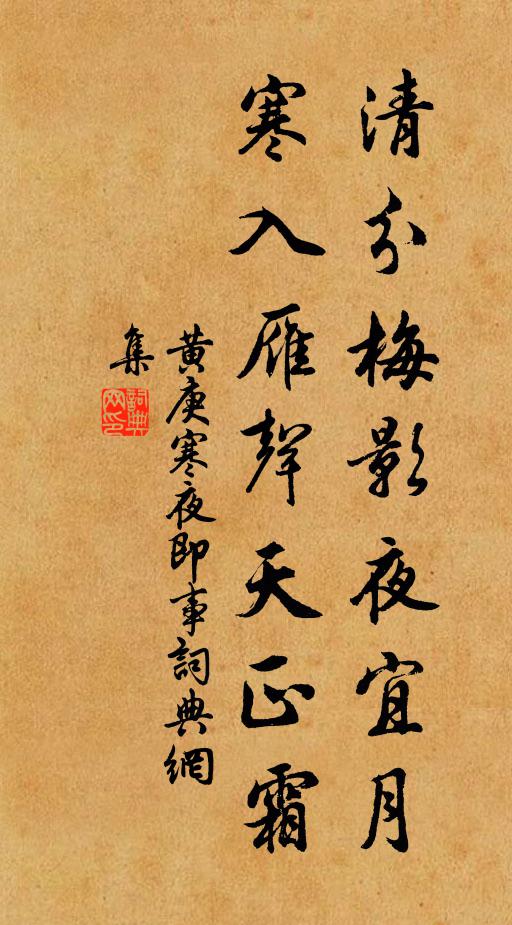 清分梅影夜宜月
寒入雁聲天正霜
黄庚寒夜即事詞典網
集
詞典
网印